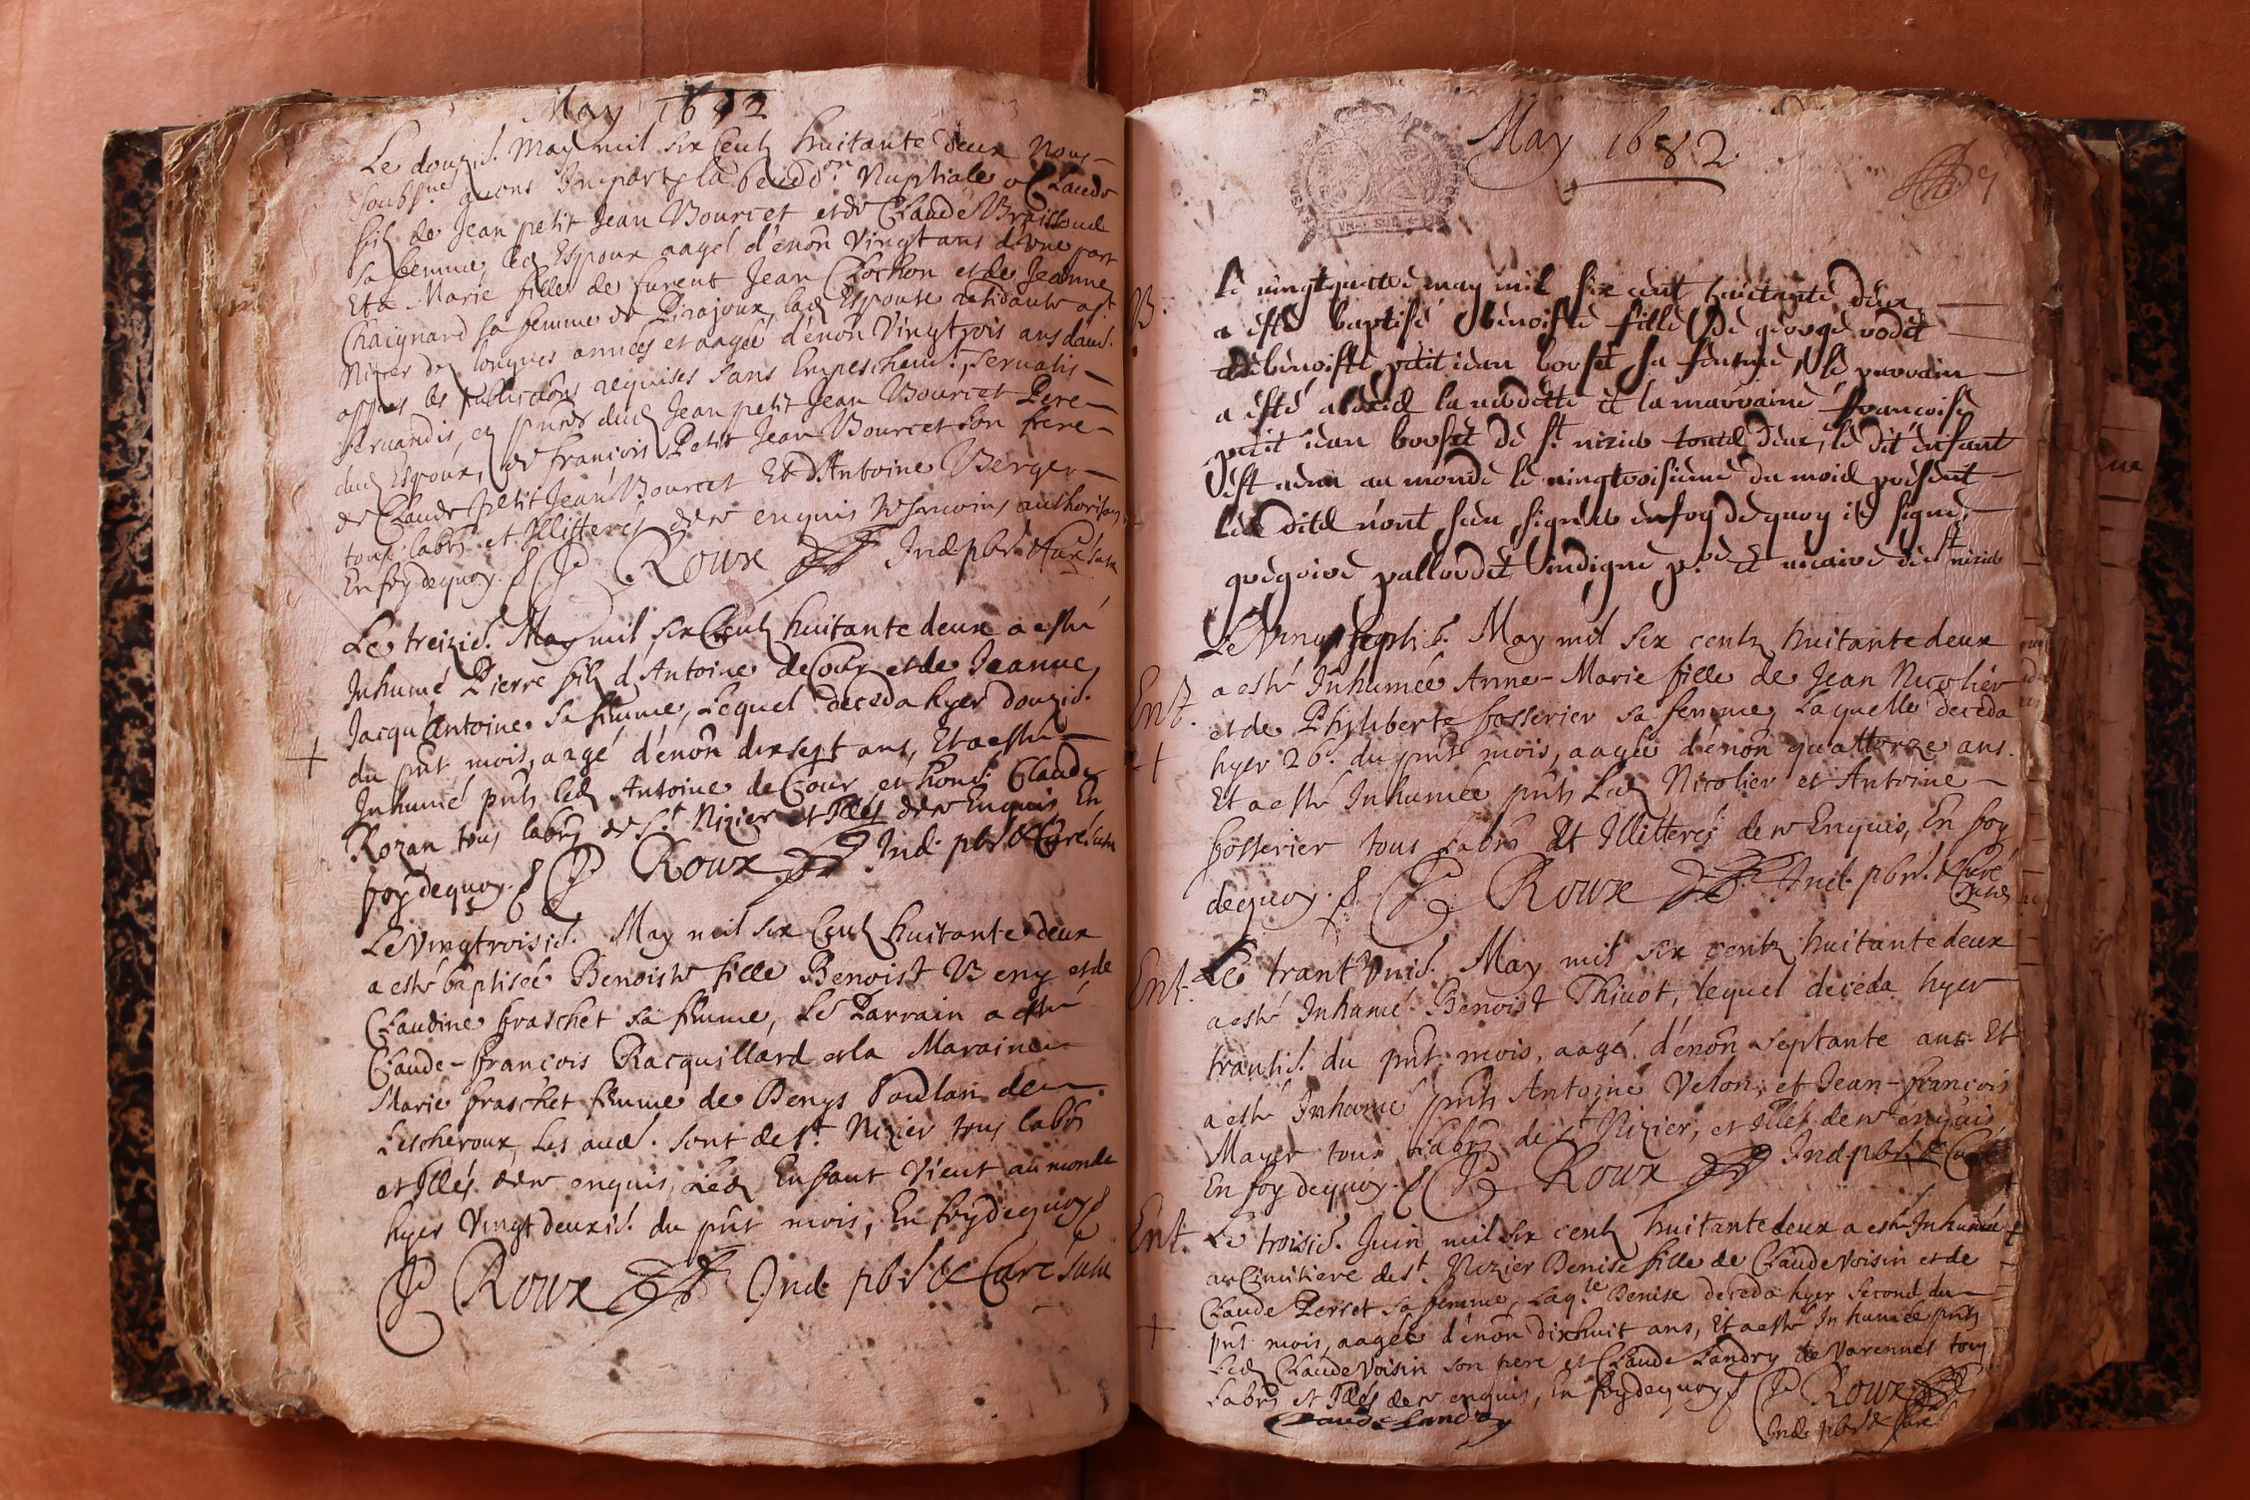 May 1682
Le douzie. May mil six Centz huitante deux Nous
soubsne. avons Imparty la bendon. Nuptiale a Claude
filz de Jean petit Jean Bourcet et de Claude
sa femme, led Espoux aagé d'énōn Vingt ans d'une part
Et a Marie fille de furent Jean Clochon et de Jeanne
Chaignard sa femme de Pirajoux, lad Espouse résidante a St
Nizier dez longues années et aagée d'énōn Vingtrois ans d'autre.
apprès les publicāons requises sans Empeschemt. Servatis
servandis, en pūce dud Jean petit Jean Bourcet Pere
dud Espoux, de francois Petit Jean Bourcet son frere
de Claude petit Jean Bourcet Et d'Antoine Berger
tous labrs et Illitterés de ce enquis
En foy de quoy. Roux Ind. pbr. & Curé susd
Le treizie. May mil six Centz huitante deux a esté
Inhumé Pierre filz d'Antoine deCour et de Jeanne
Jacqu'Antoine sa femme, Lequel deceda hyer douzie.
du pnt mois, aagé d'énōn dix sept ans, Et a esté
Inhumé pntz led Antoine de Cour et hons. Claude
Rozan tous labrs de St. Nizier et Illés de ce Enquis En
foy de quoy. Roux Ind. pbr. & Curé susd
Le Vingtroisie. May mil six Centz huitante deux
a esté baptisée Benoiste fille Benoist Beny et de
Claudine fraschet sa femme, Le Parrain a esté
Claude-françois Racquillard et la Maraine
Marie fraschet femme de Denys Poulan de
Lescheroux, Les aud. sont de St. Nizier tous labrs
et Illés. de ce enquis, Led Enfant Vient au monde
hyer Vingt deuxie. du pnt mois, En foy de quoy
Roux Ind. pbr. & Curé susd
May 1682
B.
Le vingtquatre may mil six cent huitante deux
a esté baptisé benoiste fille de george vodet
et benoiste petit iean borset sa femme, le parrain
a esté la maraine francoise
petit iean borset de St. nizie tout deux, le dit enfant
est venu au monde le vingtroisieme du mois present
les dits n'ont sceu signer en foy de quoy ie signe
gregoire pallordet indigne p.re et vicaire de St nizie
Le Vingt septie. May mil six centz huitante deux
Ent.
a esté Inhumée Anne-Marie fille de Jean Nicolier
et de Philiberte fosserier sa femme, Laquelle deceda
hyer 26e. du pnt mois, aagée d'énōn quattorze ans.
Et a esté Inhumée pntz Led Nicolier et Antoine
fosserier tous labrs Et Illitterés de ce Enquis, En foy
de quoy. Roux Ind. pbr. & Curé susd
Ent.
Le trant'Unie. May mil six centz huitante deux
a esté Inhumé Benoist Thivot, lequel deceda hyer
trantie. du pnt mois, aagé d'énōn septante ans Et
a esté Inhumé pntz Antoine Velon, et Jean-françois
Mayer tous Labrs de St. Nizier, et Illés de ce enquis,
En foy de quoy. Roux Ind. pbr. & Curé
Ent.
Le troisie. Juin mil six centz huitante deux a esté Inhumée
au Cimitiere de St. Nizier Denise fille de Claude Voisin et de
Claude Perret sa femme, Laqle Denise deceda hyer second du
pnt mois, aagée d'énōn dixhuit ans, Et a esté Inhumée pntz
Led Claude Voisin son pere et Claude Landry de Varennes tous
Labrs et Illés de ce enquis, En foy de quoy Roux
Claude Landry Ind. pbr. & Curé